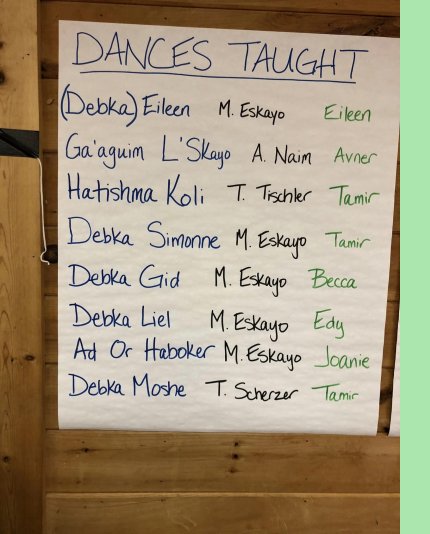 DANCES TAUGHT
(Debka) Eileen M. Eskayo Eileen
Ga'aguim L'Skayo A. Naim Avner
Hatishma Koli T. Tischler Tamir
Debka Simonne M. Eskayo Tamir
Debka Gid M. Eskayo Becca
Debka Liel M. Eskayo Edy
Ad Or Haboker M. Eskayo Joanie
Debka Moshe T. Scherzer Tamir